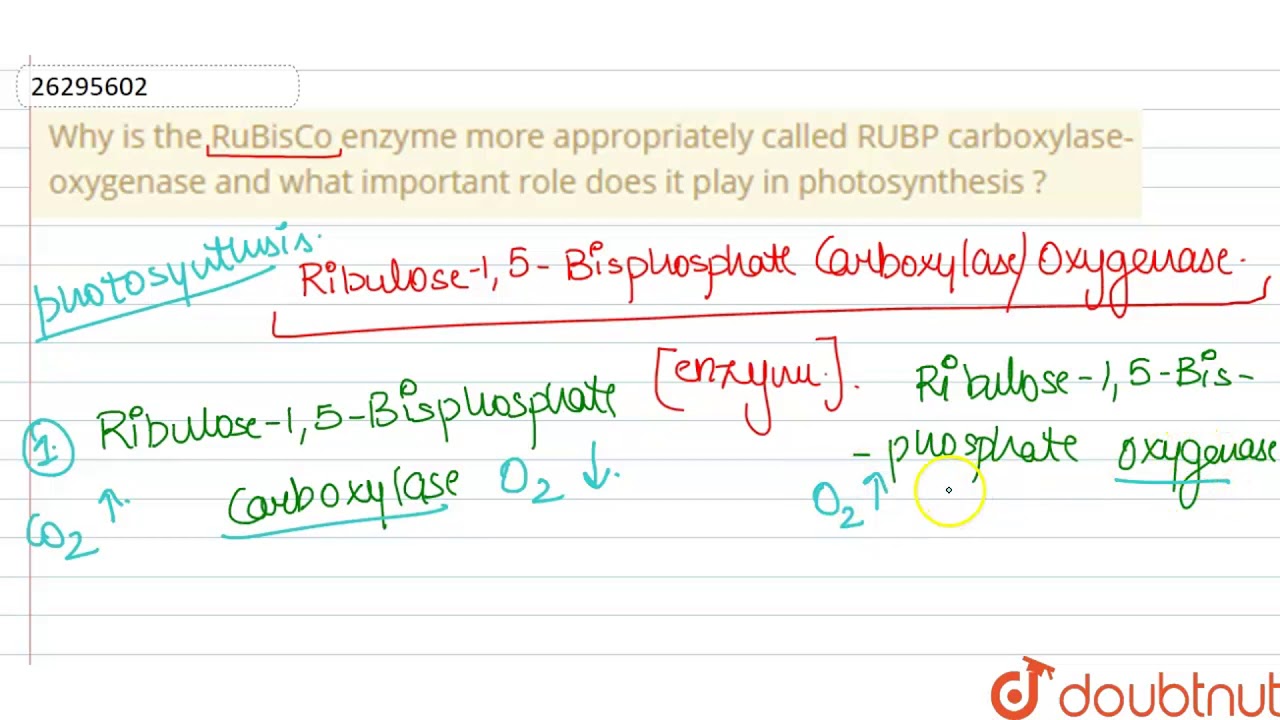 26295602
Why is the RuBisCo enzyme more appropriately called RUBP carboxylase-
oxygenase and what important role does it play in photosynthesis ?
photosynthesis.
Ribulose-1,5-Bisphosphate Carboxylase/Oxygenase.
[enzyme].
1. Ribulose-1,5-Bisphosphate
Carboxylase
CO2 ↑
O2 ↓
Ribulose-1,5-Bis-
-phosphate oxygenase
O2 ↑
doubtnut